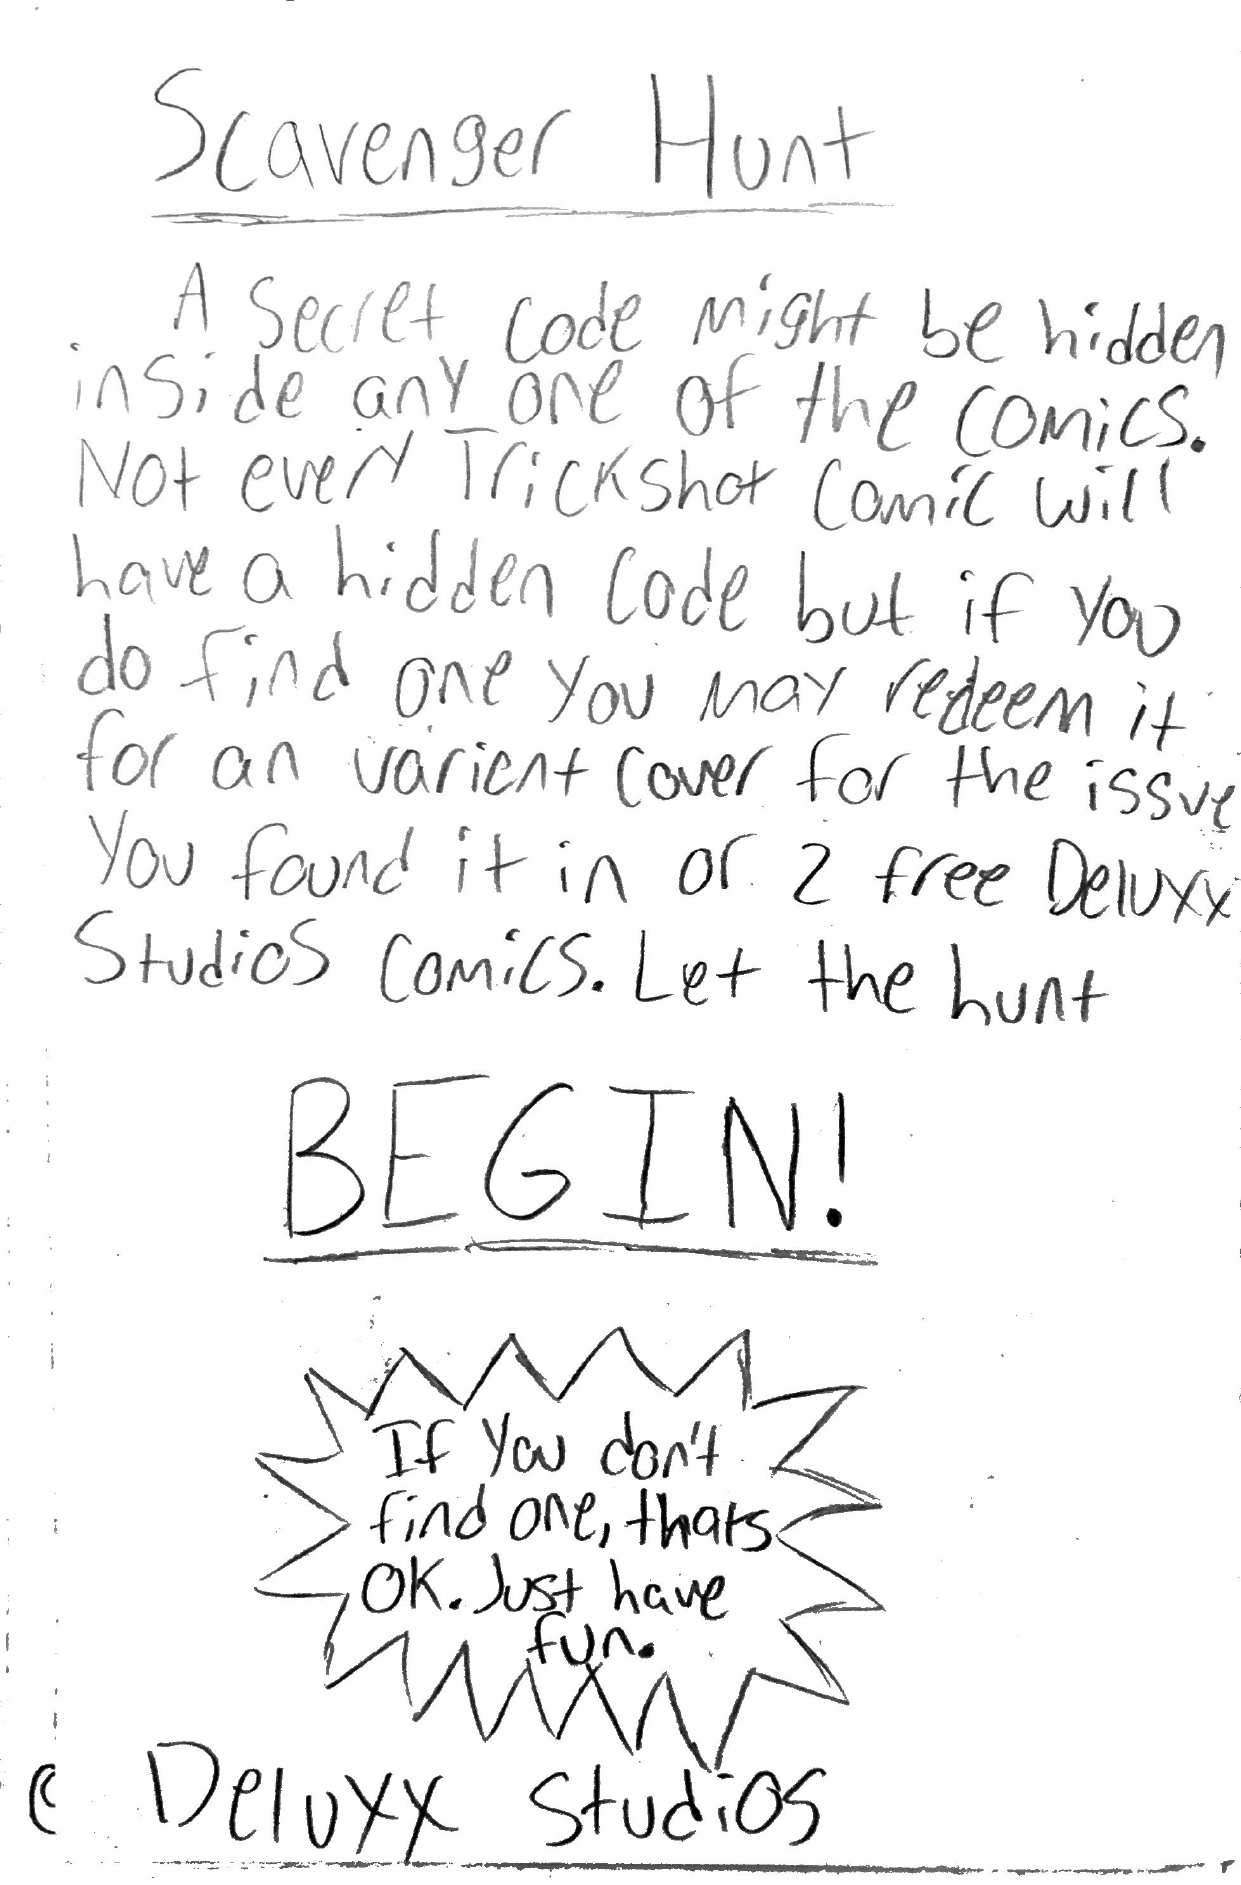 Scavenger Hunt
A Secret code might be hidden
inside any one of the comics.
Not every Trickshot comic will
have a hidden code but if you
do find one you may redeem it
for an varient cover for the issue
You found it in or 2 free Deluxx
Studios comics. Let the hunt
BEGIN!
If you don't
find one, thats
OK. Just have
fun.
© Deluxx Studios